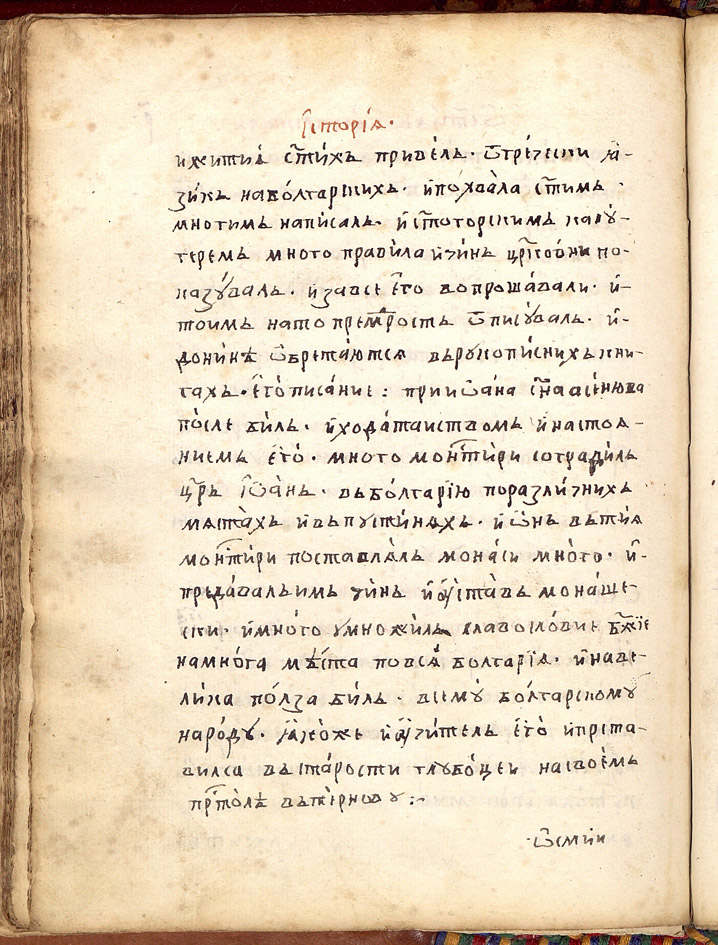 І҆сторїѧ·
и҆житиѧ̀ ст҃и́хъ приве́лъ· ѿгрѣ́чески ꙗ҆-
зи́къ набо́лгарскихъ· и҆похва́ла ст҃имъ·
многимъ напи́салъ· и҆ ст҃огорскимъ каву-
геремъ много прави́ла и҆чи́нъ цр҃ко́вни по-
казу́валъ· и҆завсе є҆го̀ вопроша́вали· и҆-
тоимъ нато прем҃рость ѿпису́валъ· и҆-
дони́нѣ ѡ҆брета́ютсѧ въ рукопи́снихъ кни-
гахъ· є҆го̀ писа́ние: при иѡа́на с҃на асе́нюва
по́сле би́лъ· и҆хода́таиствомъ и҆настоѧ-
ниемъ є҆го̀· мно́го мон҃ти́ри согради́лъ
цр҃ъ І҆ѡа́нъ· въбо́лгарїю поразли́чнихъ
мѧста́хъ и҆въпусти́нѧхъ· и҆ ѡ҆нъ въти́ѧ
мон҃ти́ри поставлѧ́лъ монаси мно́го· и҆-
преда́валъимъ чи́нъ и҆ ᲂу҆ста́въ мона́ше-
ски· и҆мно́го умножи́лъ славосло́вие бж҃їе
намно́га мѣ́ста повсѧ̀ болгарїѧ· и҆наве-
ли́ка по́лза би́лъ· всемꙋ̀ бо́лгарскомꙋ
наро́дꙋ· ꙗ҆́коже и҆ ᲂу҆чи́тель є҆го̀ и҆преста-
вилса въста́рости глубо́цеи насво́емъ
пр҃то́лѣ въте́рновꙋ:~
·Ѻ҆сми́и